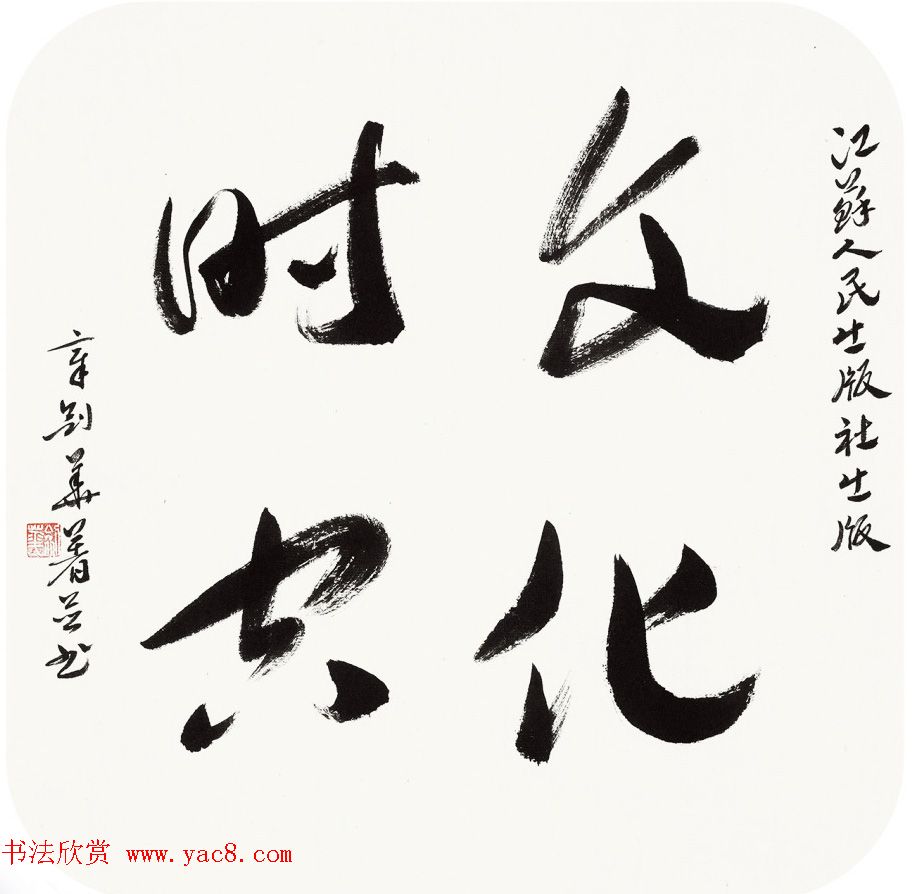 江蘇人民出版社出版
文化
时空
章剑華著并书
书法欣赏 www.yac8.com